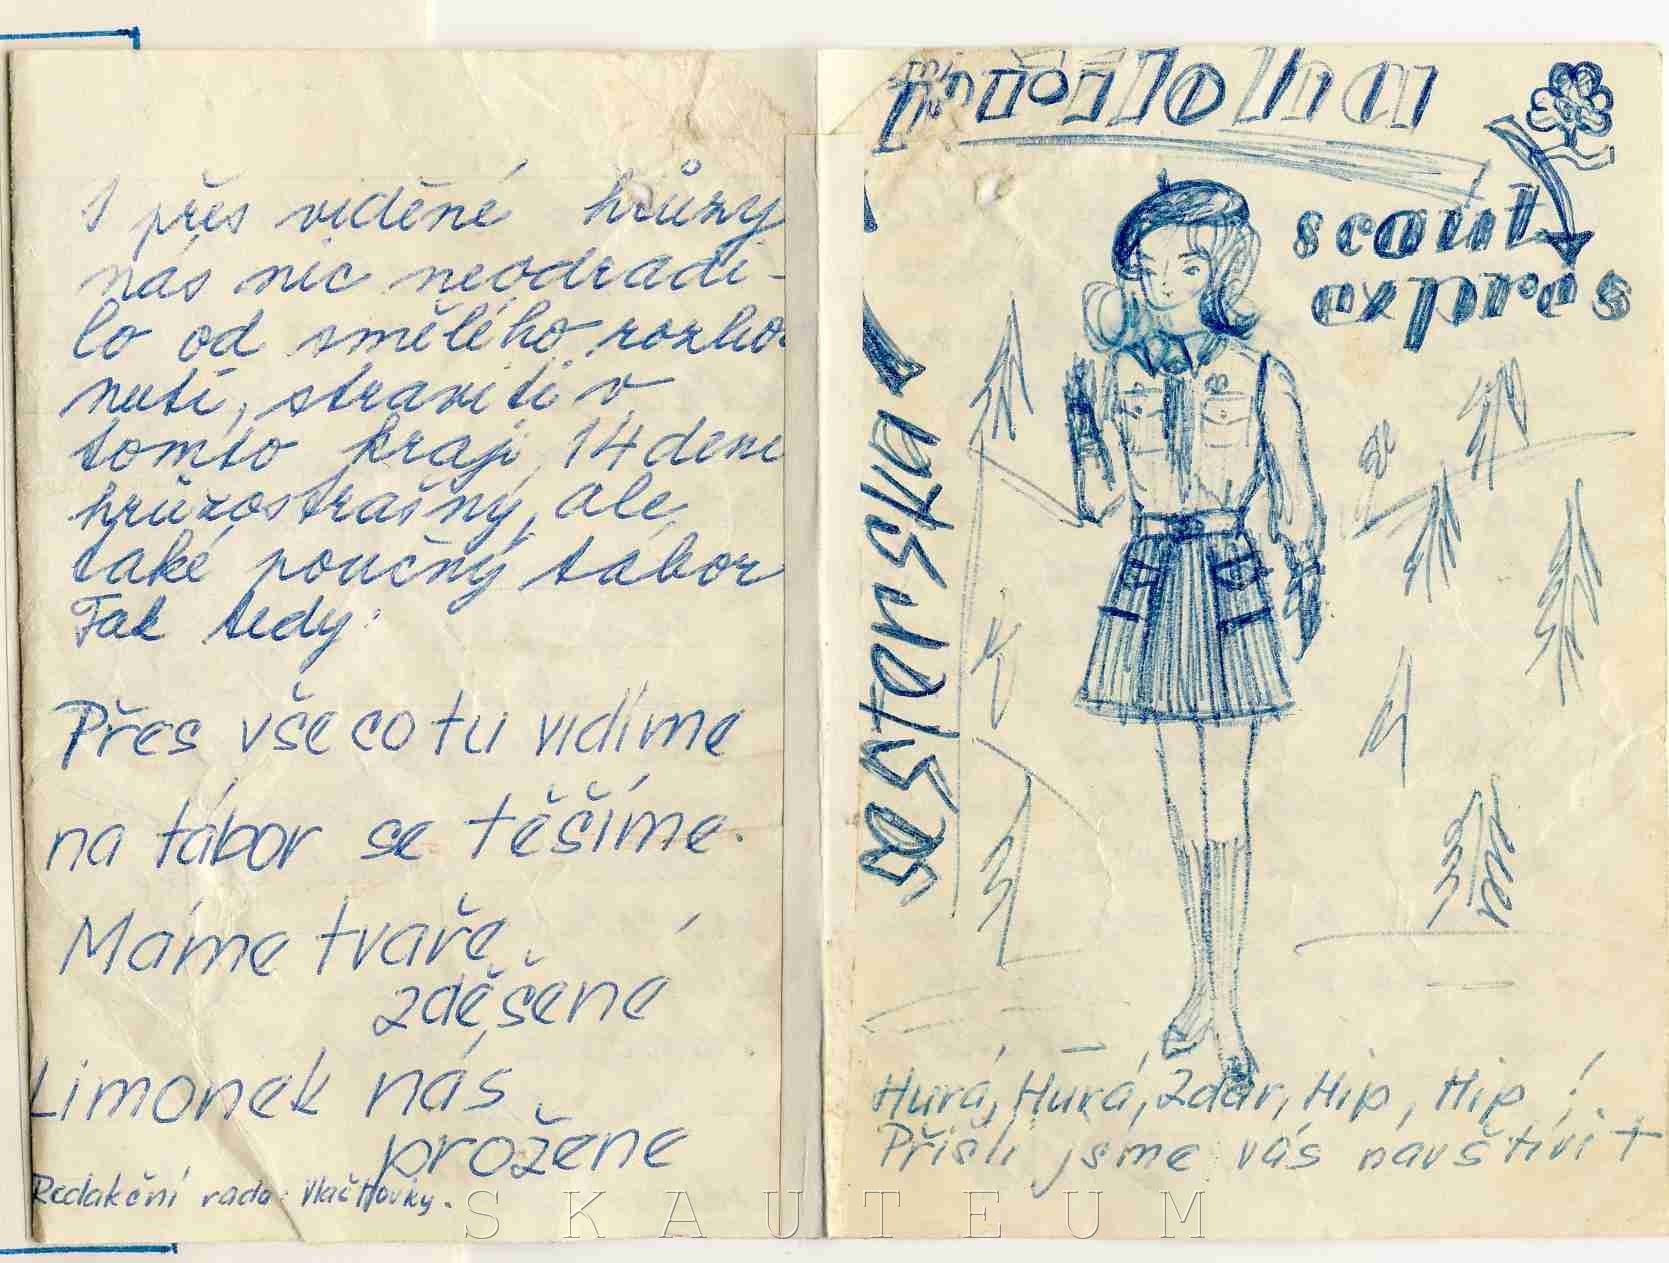 I přes viděné hrůzy
nás nic neodradi-
lo od smělého rozho
nutí, stráviti v
tomto kraji 14 dení
hrůzostrašný, ale
také poučný tábor
Tak tedy:
Přes vše co tu vidíme
na tábor se těšíme.
Máme tváře
zděšené
Limonek nás
prožene
Redakční rada:
sesterska
scout
expres
Hurá, Hurá, Zdar, Hip, Hip!
Přišli jsme vás navštívit
SKAUTEUM